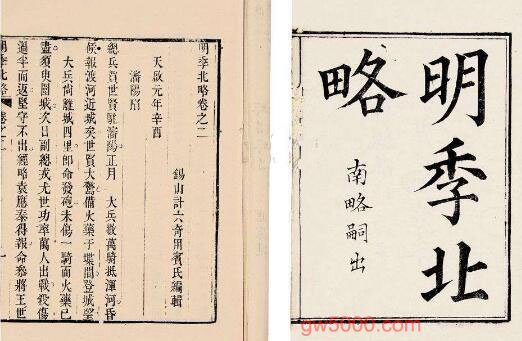 明季北
略
南略嗣出
gw5000.com
明季北略卷之二
錫山計六奇用賓氏編輯
天啟元年辛酉
瀋陽陷
總兵賀世賢駐瀋陽正月 大兵數萬騎抵渾河昏
候報渡河近城矣世賢大驚備火藥于堞間登城望
大兵尚離城四里卽命發砲未傷一騎而火藥已
盡須臾圍城次日副總戎尤世功率萬人出戰殺傷
過半而返堅守不出經略袁應泰得報命參將王世
明季北略 卷之二 一